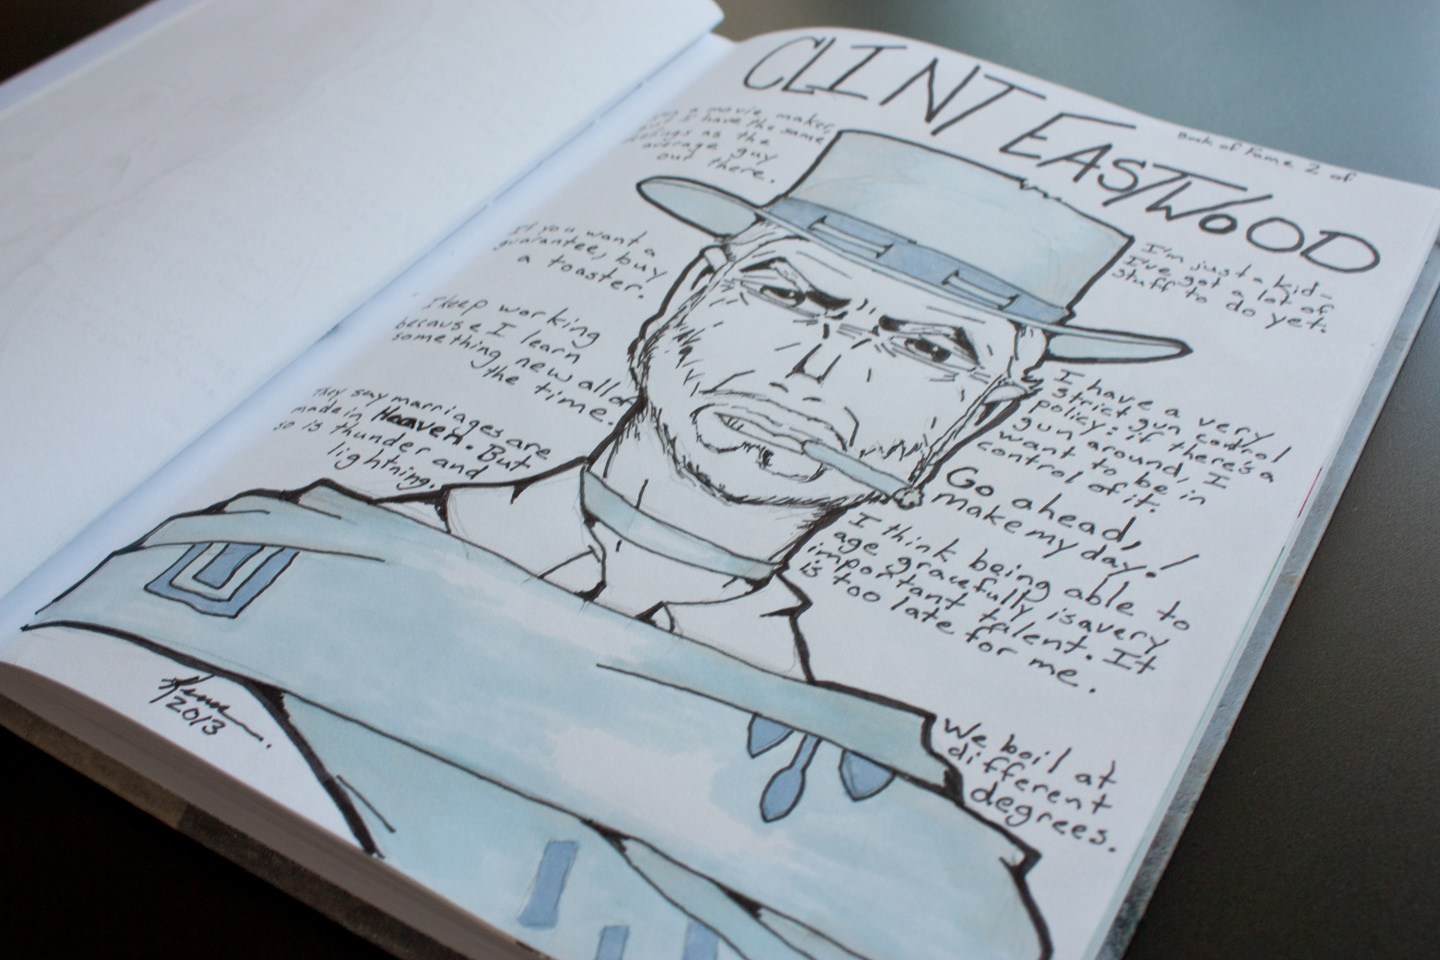 CLINT EASTWOOD
Book of Fame 2 of
a movie maker,
I have the same
feelings as the
average guy
out there.
If you want a
guarantee, buy
a toaster.
I keep working
because I learn
something new all of
the time.
They say marriages are
made in Heaven. But
so is thunder and
lightning.
I'm just a kid-
I've got a lot of
stuff to do yet.
I have a very
strict gun control
policy: if there's a
gun around, I
want to be in
control of it.
Go ahead,
make my day!
I think being able to
age gracefully is a very
important talent. It
is too late for me.
We boil at
different
degrees.
2013